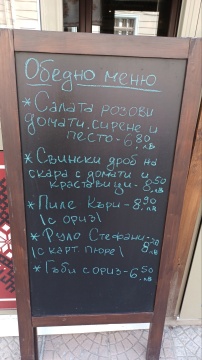 Обедно меню
* Салата розови
домати, сирене и
песто - 6.80 лв
* Свински дроб на
скара с домати и
краставици - 8.50 лв
* Пиле Къри - 8.90 лв
\с ориз\
* Руло Стефани -
\с карт. пюре\ лв
* Гъби с ориз - 6.50 лв